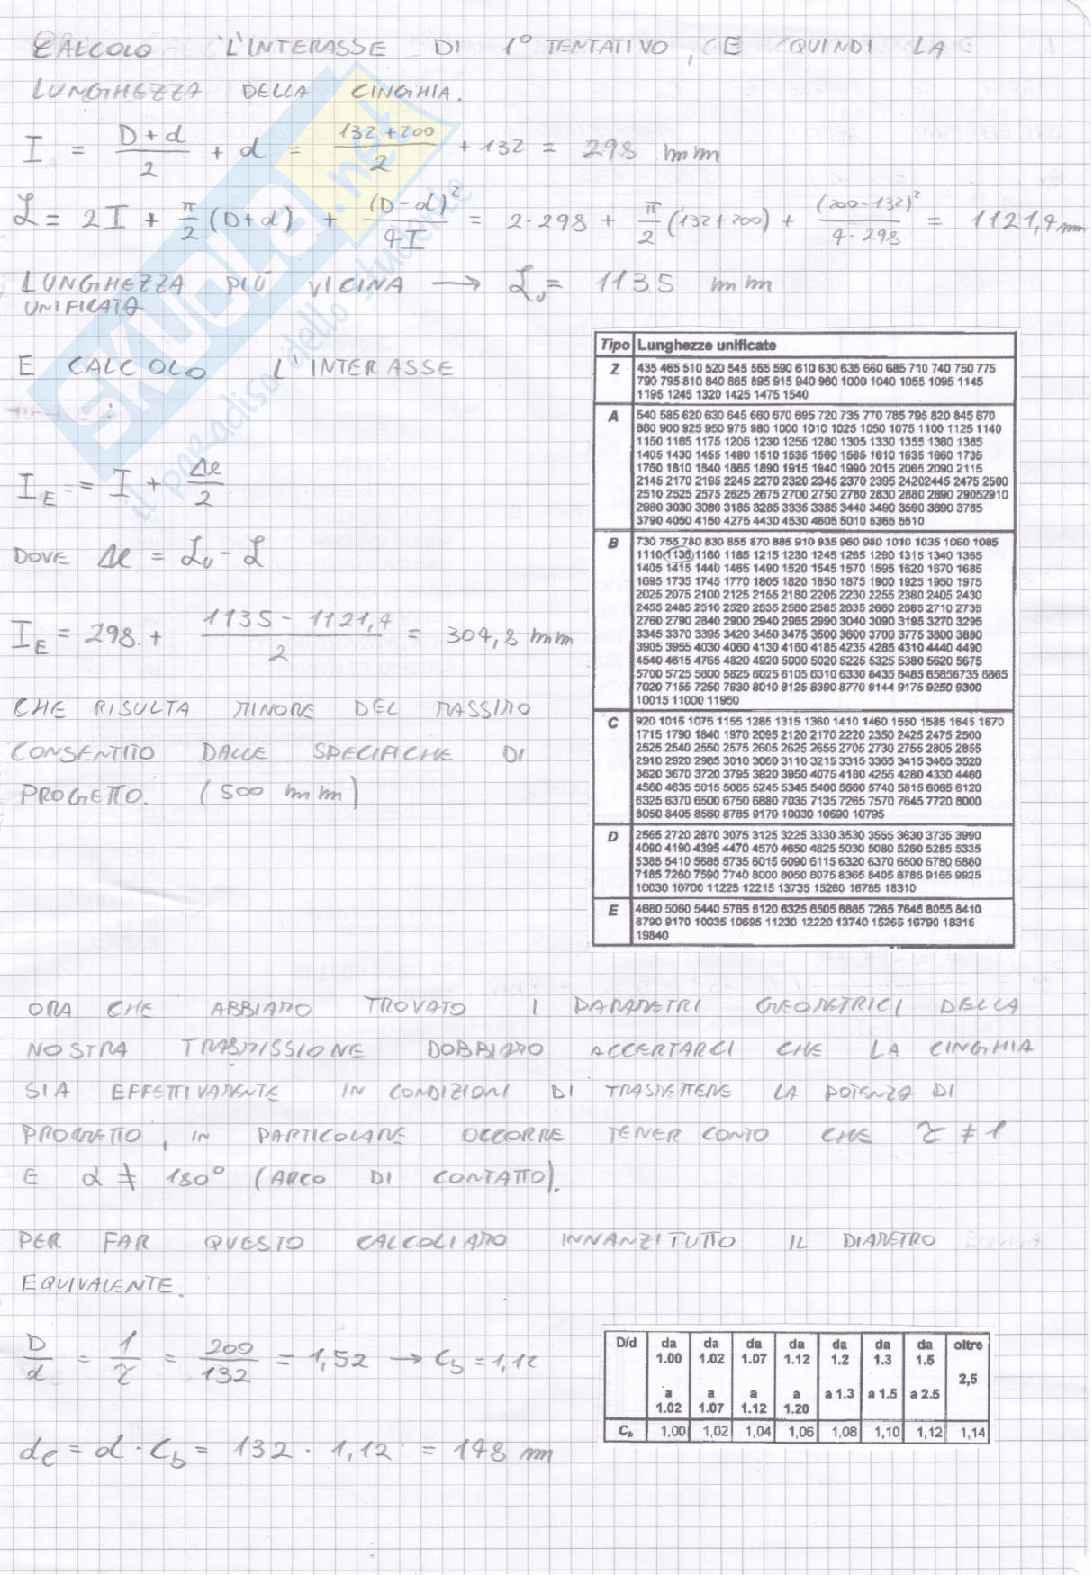 CALCOLO L'INTERASSE DI 1° TENTATIVO, E QUINDI LA
LUNGHEZZA DELLA CINGHIA.
I = (D+d)/2 + d = (132+200)/2 + 132 = 298 mm
L = 2I + π/2 (D+d) + (D-d)²/4I = 2·298 + π/2 (132+200) + (200-132)²/4·298 = 1121,4 mm
LUNGHEZZA PIÙ VICINA → Lᵤ = 1135 mm
UNIFICATA
E CALCOLO L'INTERASSE
I_E = I + Δl/2
DOVE Δl = Lᵤ - L
I_E = 298 + (1135 - 1121,4)/2 = 304,8 mm
CHE RISULTA MINORE DEL MASSIMO
CONSENTITO DALLE SPECIFICHE DI
PROGETTO. (500 mm)
Tipo Lunghezze unificate
Z 435 465 510 520 545 565 590 610 630 635 660 685 710 740 750 775
790 795 810 840 865 895 915 940 960 1000 1040 1055 1095 1145
1195 1245 1320 1425 1475 1540
A 540 585 620 630 645 660 670 695 720 735 770 785 795 820 845 870
880 900 925 950 975 980 1000 1010 1025 1050 1075 1100 1125 1140
1150 1165 1175 1205 1230 1255 1280 1305 1330 1355 1380 1385
1405 1430 1455 1480 1510 1535 1560 1585 1610 1635 1660 1735
1760 1810 1840 1865 1890 1915 1940 1990 2015 2065 2090 2115
2145 2170 2195 2245 2270 2320 2345 2370 2395 24202445 2475 2500
2510 2525 2575 2625 2675 2700 2750 2780 2830 2880 2890 29052910
2980 3030 3080 3185 3285 3335 3385 3440 3490 3590 3690 3785
3790 4050 4150 4275 4430 4530 4605 5010 5365 5610
B 730 755 780 830 855 870 885 910 935 960 980 1010 1035 1060 1085
1110 1135 1160 1185 1215 1230 1245 1265 1290 1315 1340 1365
1405 1415 1440 1465 1490 1520 1545 1570 1595 1620 1670 1685
1695 1735 1745 1770 1805 1820 1850 1875 1900 1925 1950 1975
2025 2075 2100 2125 2155 2180 2205 2230 2255 2380 2405 2430
2455 2485 2510 2520 2535 2560 2585 2635 2660 2685 2710 2735
2760 2790 2840 2900 2940 2965 2990 3040 3090 3195 3270 3295
3345 3370 3395 3420 3450 3475 3500 3600 3700 3775 3800 3880
3905 3955 4030 4060 4130 4160 4185 4235 4285 4310 4440 4490
4540 4615 4765 4820 4920 5000 5020 5225 5325 5380 5620 5675
5700 5725 5800 5825 6025 6105 6310 6330 6435 6485 65856735 6865
7020 7155 7250 7630 8010 8125 8390 8770 9144 9175 9250 9300
10015 11000 11950
C 920 1015 1075 1155 1285 1315 1360 1410 1460 1550 1585 1645 1670
1715 1790 1840 1970 2095 2120 2170 2220 2350 2425 2475 2500
2525 2540 2550 2575 2605 2625 2655 2705 2730 2755 2805 2855
2910 2920 2965 3010 3060 3110 3215 3315 3365 3415 3465 3520
3620 3670 3720 3795 3820 3950 4075 4180 4255 4280 4330 4460
4560 4635 5015 5065 5245 5345 5400 5600 5740 5815 6065 6120
6325 6370 6500 6750 6880 7035 7135 7265 7570 7645 7720 8000
8050 8405 8560 8785 9170 10030 10690 10795
D 2565 2720 2870 3075 3125 3225 3330 3530 3555 3630 3735 3990
4090 4190 4395 4470 4570 4650 4825 5030 5080 5260 5285 5335
5385 5410 5685 5735 6015 6090 6115 6320 6370 6500 6780 6860
7185 7260 7590 7740 8000 8050 8075 8365 8405 8785 9165 9925
10030 10700 11225 12215 13735 15260 16785 18310
E 4680 5060 5440 5785 6120 6325 6505 6885 7265 7645 8055 8410
8790 9170 10035 10695 11230 12220 13740 15265 16790 18316
19840
ORA CHE ABBIAMO TROVATO I PARAMETRI GEOMETRICI DELLA
NOSTRA TRASMISSIONE DOBBIAMO ACCERTARCI CHE LA CINGHIA
SIA EFFETTIVAMENTE IN CONDIZIONI DI TRASMETTERE LA POTENZA DI
PROGETTO, IN PARTICOLARE OCCORRE TENER CONTO CHE τ ≠ 1
E α ≠ 180° (ARCO DI CONTATTO).
PER FAR QUESTO CALCOLIAMO INNANZITUTTO IL DIAMETRO
EQUIVALENTE.
D/d = 1/τ = 200/132 = 1,52 → C_b = 1,12
d_e = d · C_b = 132 · 1,12 = 148 mm
D/d da da da da da da da oltre
1.00 1.02 1.07 1.12 1.2 1.3 1.5
2,5
a a a a a 1.3 a 1.5 a 2.5
1.02 1.07 1.12 1.20
C_b 1,00 1,02 1,04 1,06 1,08 1,10 1,12 1,14
SKUOLA.net
il paradiso dello studente